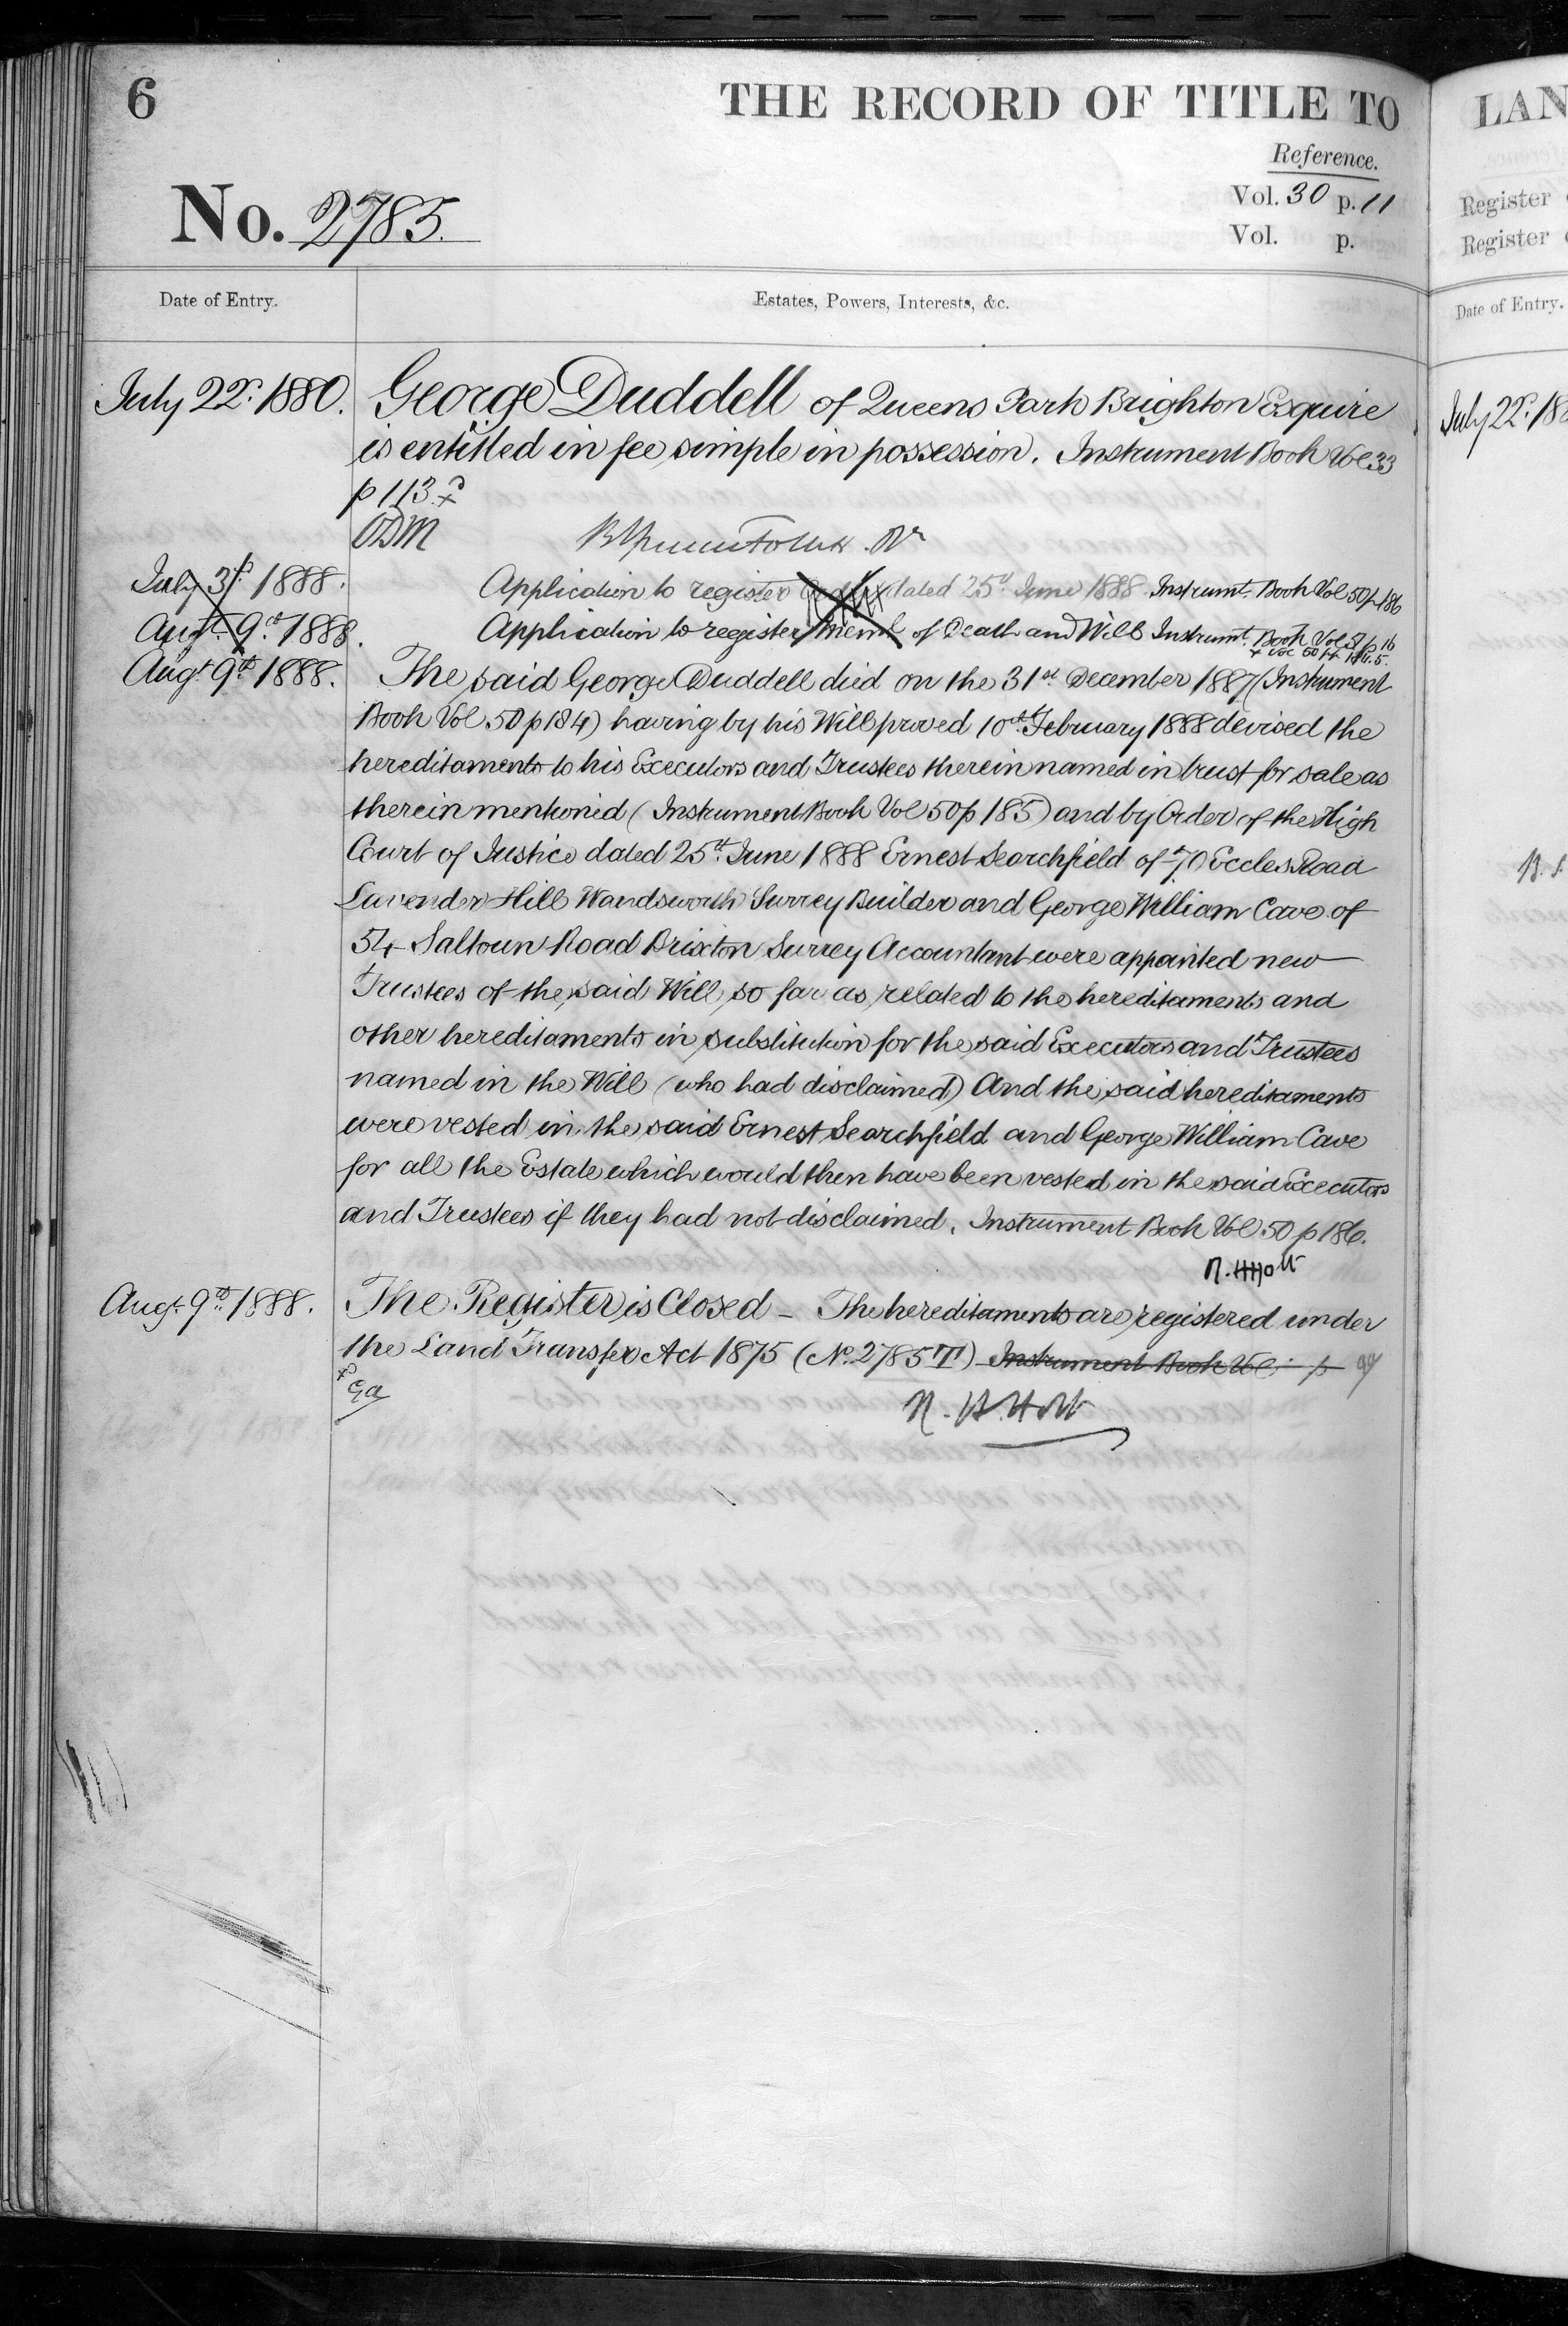 6
THE RECORD OF TITLE TO
Reference.
No. 2785.
Vol. 30 p. 11
Vol. p.
Date of Entry.
Estates, Powers, Interests, &c.
July 22d. 1880.
George Duddell of Queens Park Brighton Esquire
is entitled in fee simple in possession. Instrument Book Vol 33
p 113.
ODM
July 31st 1888.
Application to register Order dated 25th June 1888 Instrumt. Book Vol 50 p 186
Augt. 9th 1888.
Application to register of Death and Will Instrumt. Book Vol 51 p 16
Augt. 9th 1888.
The said George Duddell died on the 31st December 1887 (Instrument
Book Vol 50 p 184) having by his Will proved 10th February 1888 devised the
hereditaments to his Executors and Trustees therein named in trust for sale as
therein mentioned (Instrument Book Vol 50 p 185) and by Order of the High
Court of Justice dated 25th June 1888 Ernest Searchfield of 70 Eccles Road
Lavender Hill Wandsworth Surrey Builder and George William Cave of
54 Saltoun Road Brixton Surrey Accountant were appointed new
Trustees of the said Will so far as related to the hereditaments and
other hereditaments in substitution for the said Executors and Trustees
named in the Will (who had disclaimed) And the said hereditaments
were vested in the said Ernest Searchfield and George William Cave
for all the Estate which would then have been vested in the said Executors
and Trustees if they had not disclaimed. Instrument Book Vol 50 p 186.
R. H. Holt
Augt. 9th 1888.
The Register is Closed – The hereditaments are registered under
the Land Transfer Act 1875 (No. 2785T) Instrument Book Vol. p
R. H. Holt
LAN
Register
Register
Date of Entry.
July 22d. 188